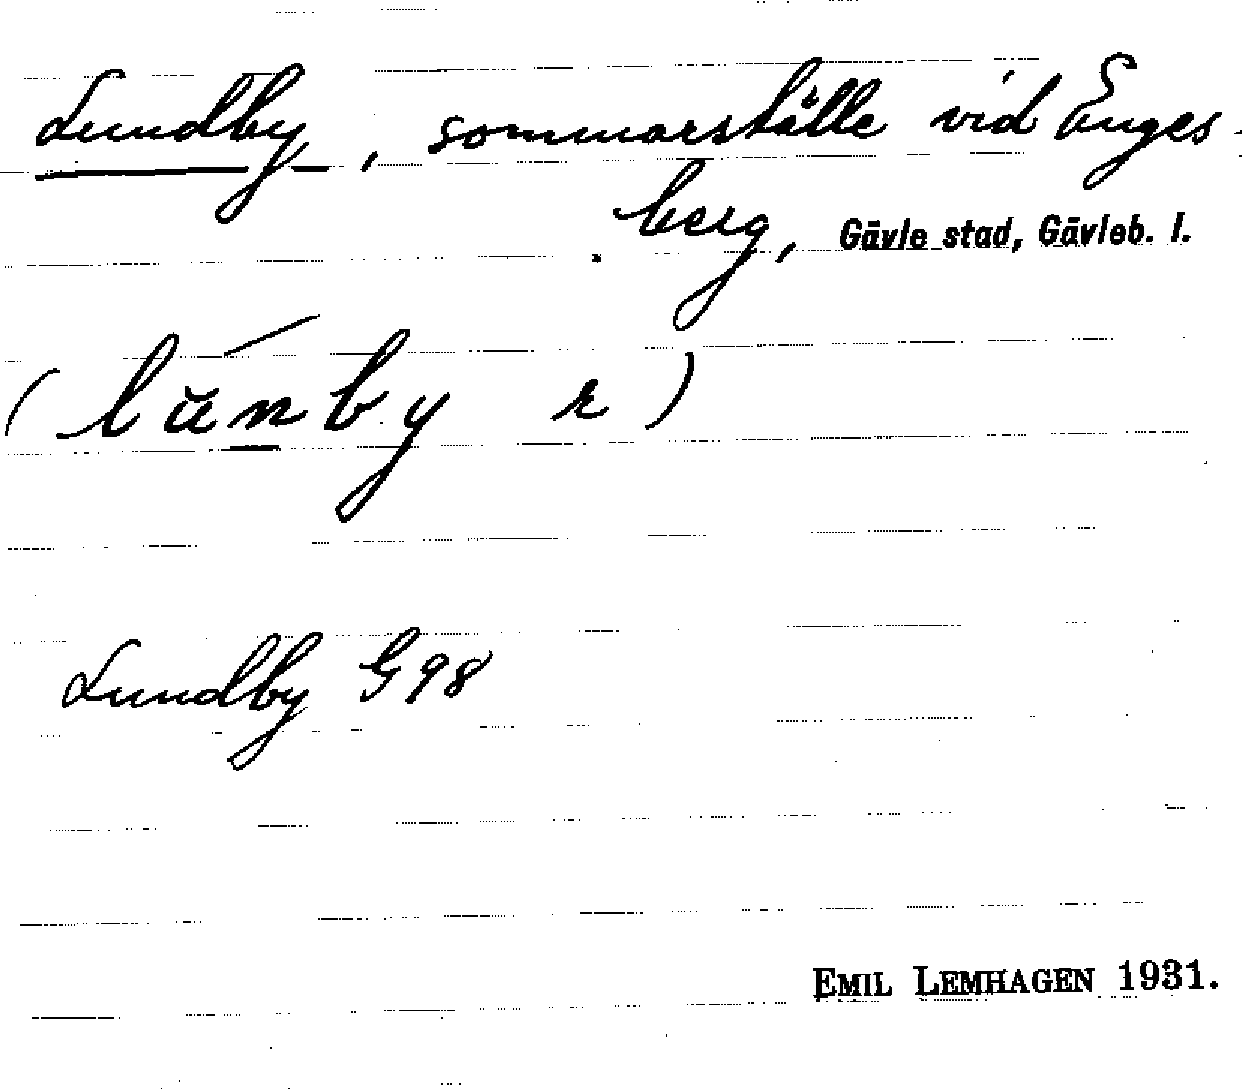 Lundby, sommarställe vid Enges-
berg, Gävle stad, Gävleb. l.
(lŭnby r)
Lundby G98
EMIL LEMHAGEN 1931.